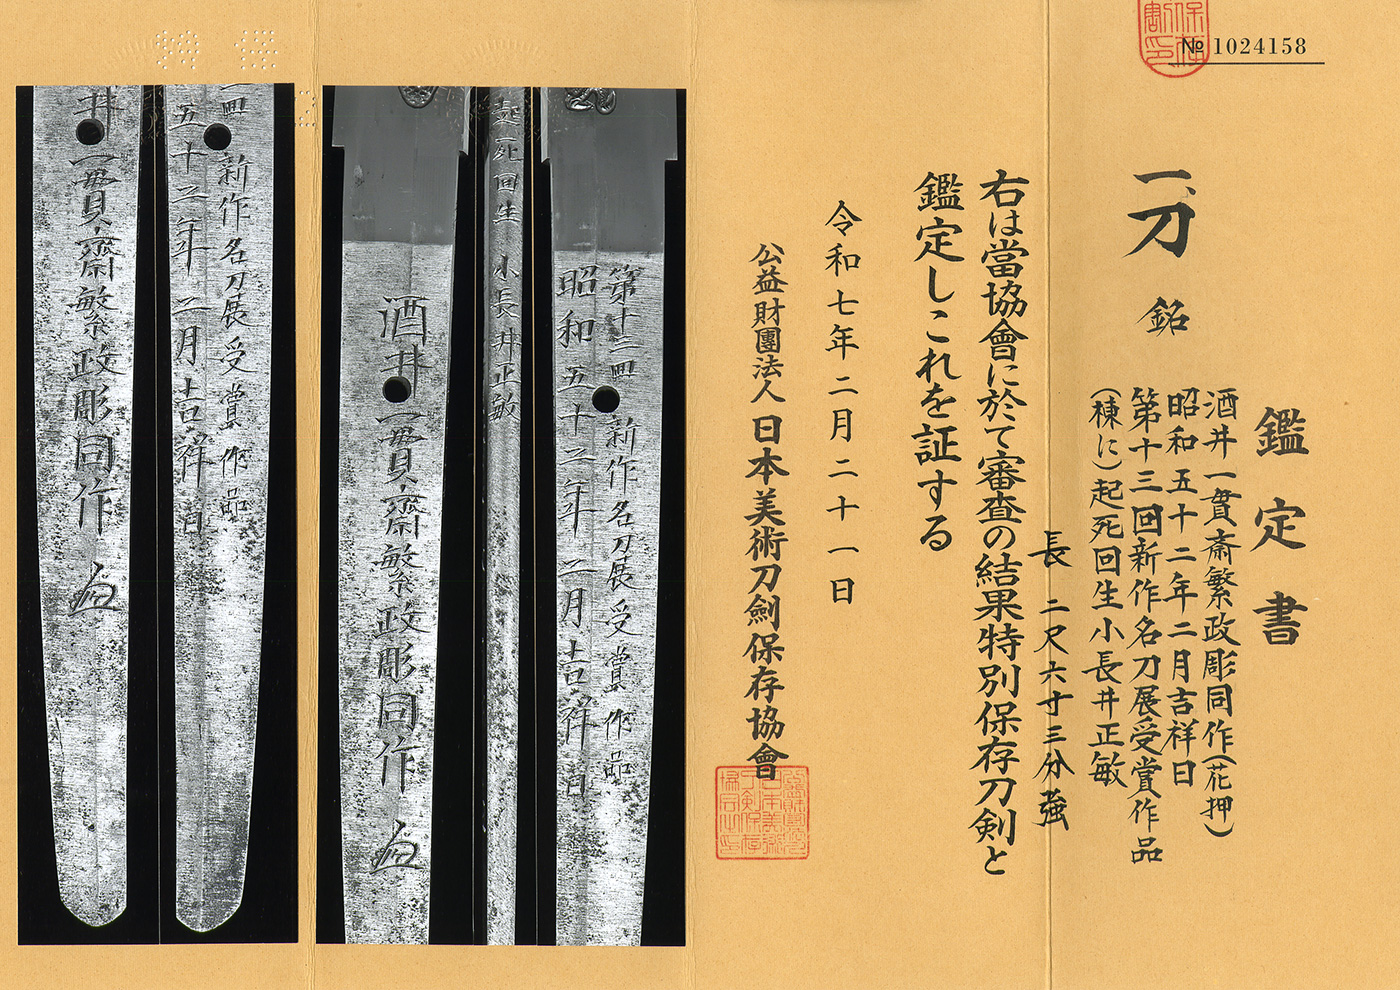 № 1024158
鑑定書
一、刀 銘
酒井一貫斎繁政彫同作(花押)
昭和五十二年二月吉祥日
第十三回新作名刀展受賞作品
(棟に)起死回生小長井正敏
長 二尺六寸三分強
右は當協會に於て審査の結果特別保存刀剣と
鑑定しこれを証する
令和七年二月二十一日
公益財團法人 日本美術刀劍保存協會
第十三回新作名刀展受賞作品
昭和五十二年二月吉祥日
起死回生 小長井正敏
酒井一貫齋繁政彫同作
回新作名刀展受賞作品
五十二年二月吉祥日
井一貫齋繁政彫同作